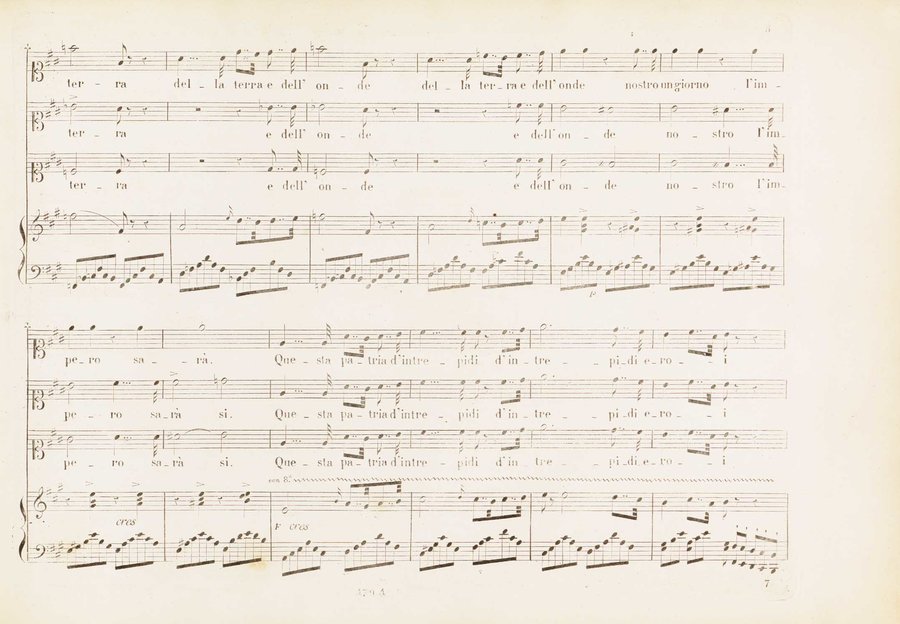 ter_ _ ra del_ _la terra e dell' on_ _de del_ _la ter_ra e dell' onde nostro un giorno l'im_
ter_ _ ra e dell' on_ _de e dell' on_ _de no_ _stro l'im_
ter_ _ ra e dell' on_ _de e dell' on_ _de no_ _stro l'im_
pe_ro sa_ _ rà. Que_ _sta pa_tria d'intre_pidi d'in_tre_ _ pi_di e_ro_ _ i
pe_ _ ro sa_rà si. Que_ _sta pa_tria d'intre_ _pidi d'in_tre_ _ pi_di e_ro_ _ i
pe_ _ ro sa_rà si. Que_ _sta pa_tria d'intre_ _pidi d'in_tre_ _ pi_di e_ro_ _ i
con 8.a
cres
F cres
P
7